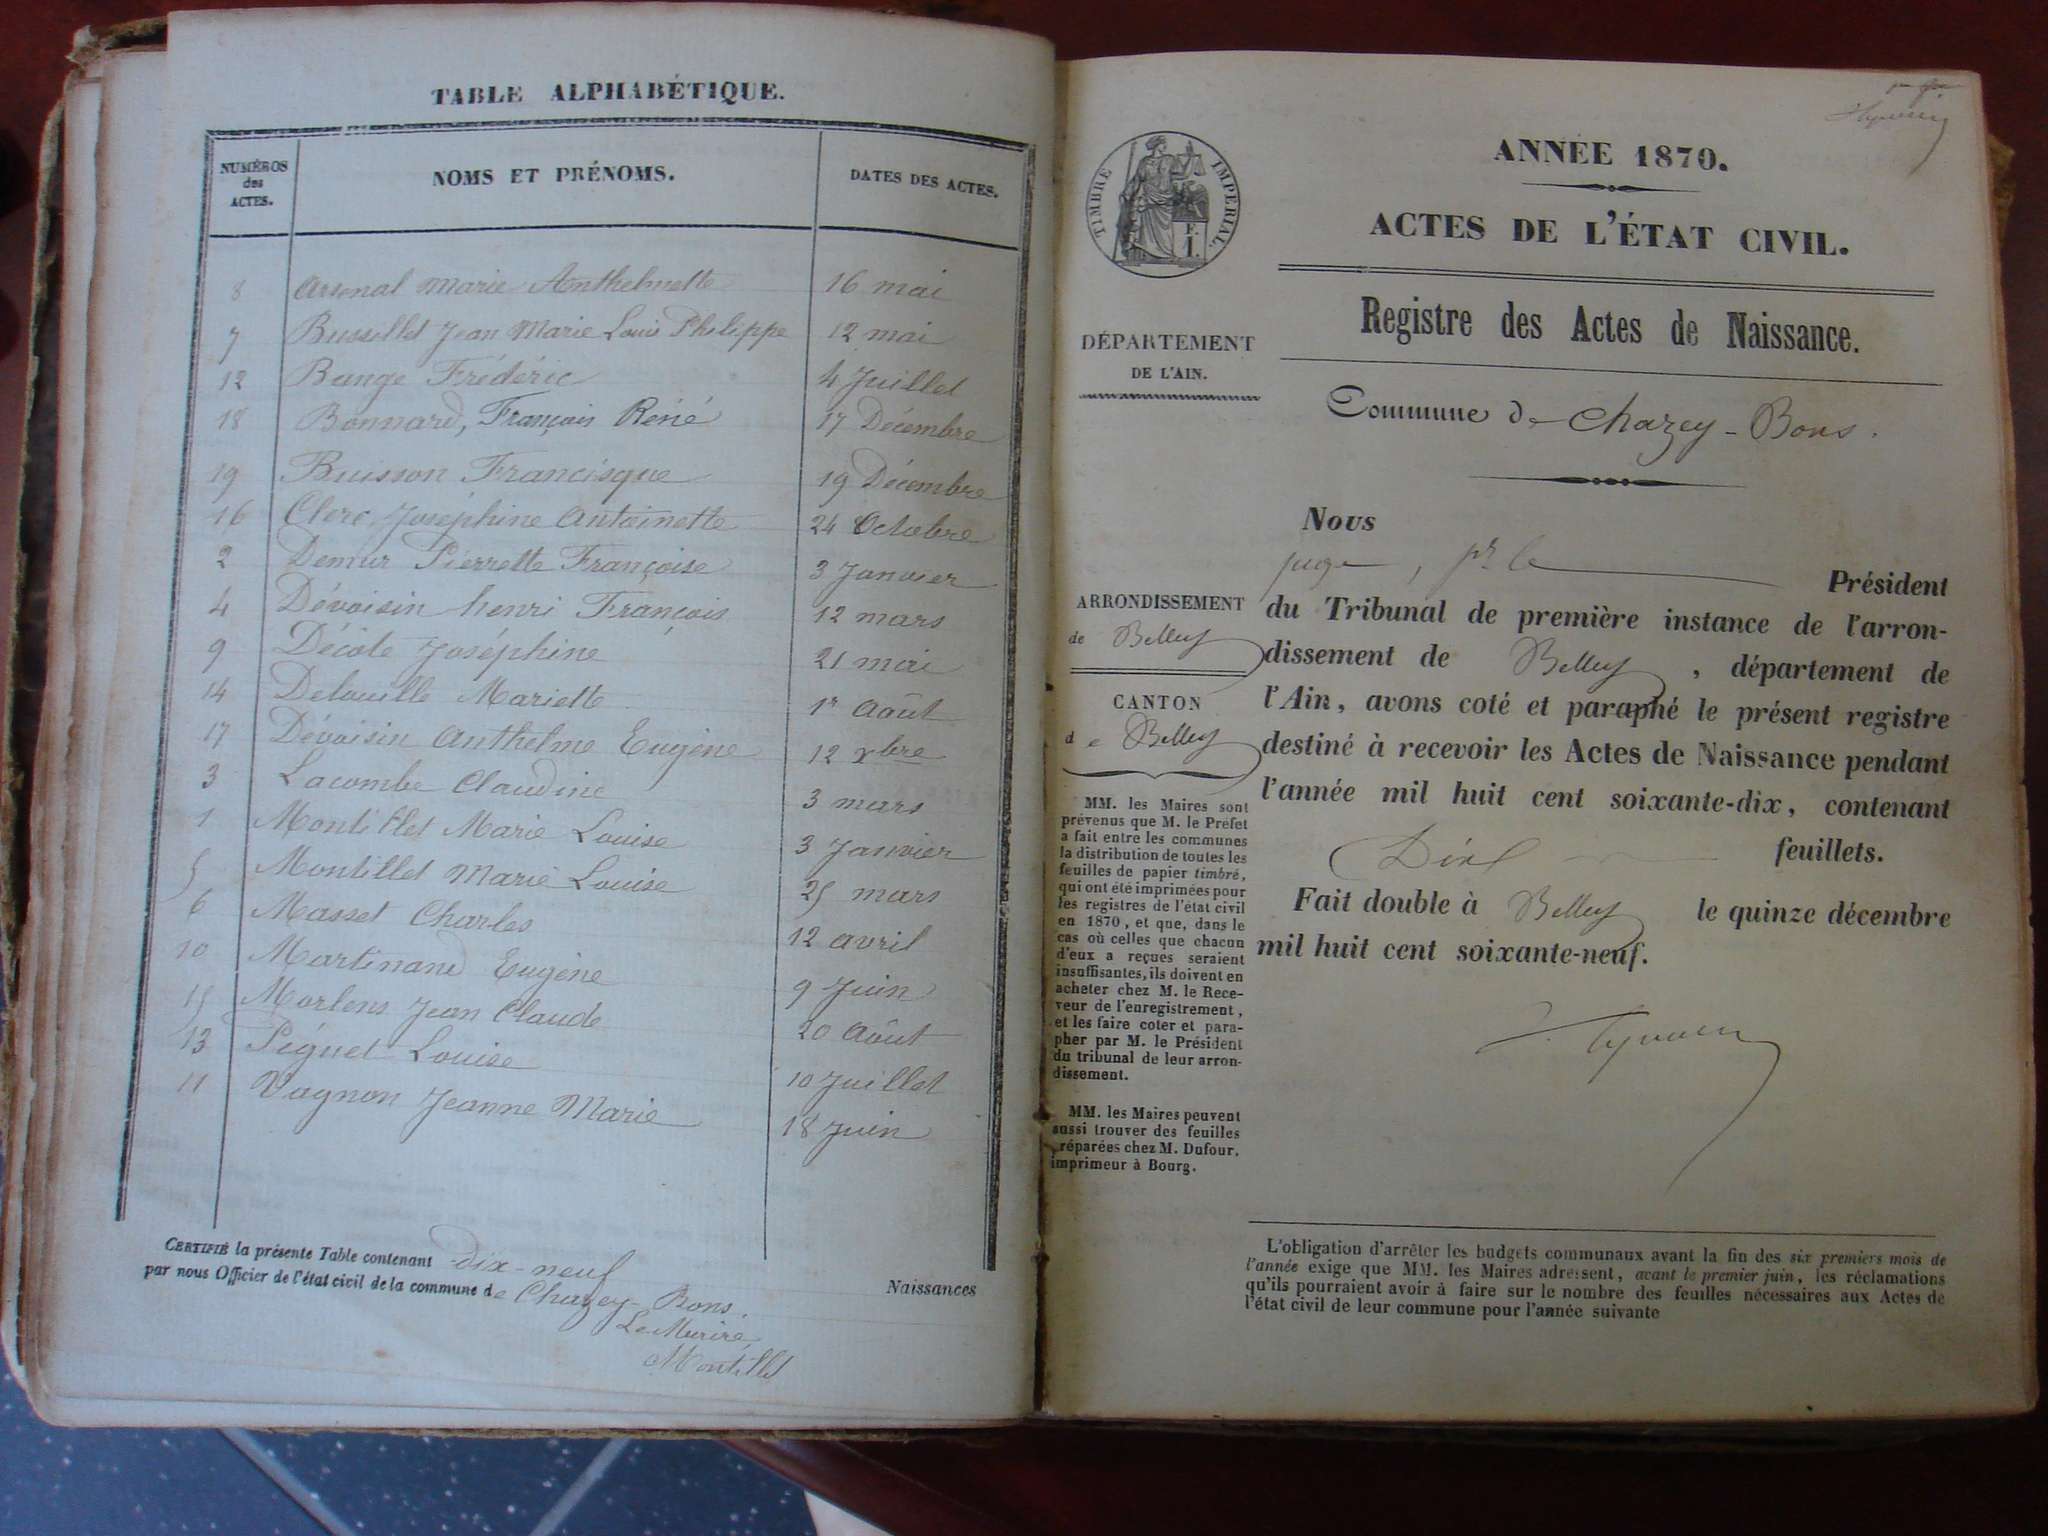 TABLE ALPHABÉTIQUE.
NUMÉROS
des
ACTES.
NOMS ET PRÉNOMS.
DATES DES ACTES.
8 Arsenal Marie Anthelmette 16 mai
7 Bussillet Jean Marie Louis Philippe 12 mai
12 Bange Frédéric 4 Juillet
18 Bonnard, François Réné 17 Décembre
19 Buisson Francisque 19 Décembre
16 Clerc Joséphine Antoinette 24 Octobre
2 Demur Pierrette Françoise 3 Janvier
4 Dévoisin henri François 12 mars
9 Décote Joséphine 21 mai
14 Delouille Mariette 1r Août
17 Dévoisin Anthelme Eugène 12 xbre
3 Lacombe Claudine 3 mars
1 Montillet Marie Louise 3 Janvier
5 Montillet Marie Louise 25 mars
6 Masset Charles 12 avril
10 Martinand Eugène 9 Juin
15 Morlens Jean Claude 20 Août
13 Péguet Louise 10 Juillet
11 Vagnon Jeanne Marie 18 Juin
CERTIFIÉ la présente Table contenant dix-neuf Naissances
par nous Officier de l'état civil de la commune de Chazey-Bons.
Le Maire
Montillet
TIMBRE IMPÉRIAL.
F.
1.
ANNÉE 1870.
ACTES DE L'ÉTAT CIVIL.
Registre des Actes de Naissance.
DÉPARTEMENT
DE L'AIN.
Commune de Chazey-Bons.
ARRONDISSEMENT
de Belley
CANTON
de Belley
MM. les Maires sont
prévenus que M. le Préfet
a fait entre les communes
la distribution de toutes les
feuilles de papier timbré,
qui ont été imprimées pour
les registres de l'état civil
en 1870, et que, dans le
cas où celles que chacun
d'eux a reçues seraient
insuffisantes, ils doivent en
acheter chez M. le Rece-
veur de l'enregistrement,
et les faire coter et para-
pher par M. le Président
du tribunal de leur arron-
dissement.
MM. les Maires peuvent
aussi trouver des feuilles
préparées chez M. Dufour,
imprimeur à Bourg.
Nous
juge, pr le Président
du Tribunal de première instance de l'arron-
dissement de Belley, département de
l'Ain, avons coté et paraphé le présent registre
destiné à recevoir les Actes de Naissance pendant
l'année mil huit cent soixante-dix, contenant
Dix feuillets.
Fait double à Belley le quinze décembre
mil huit cent soixante-neuf.
L'obligation d'arrêter les budgets communaux avant la fin des six premiers mois de
l'année exige que MM. les Maires adressent, avant le premier juin, les réclamations
qu'ils pourraient avoir à faire sur le nombre des feuilles nécessaires aux Actes de
l'état civil de leur commune pour l'année suivante